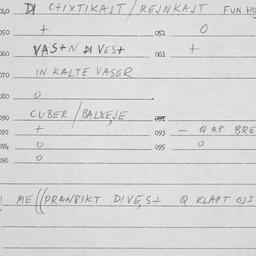 040 DI CHIXTIKAJT / REJNKAJT FUN HO
050 + 051 O
060 VASHN DI VESH 061 +
070 IN KALTE VASER
080 O
090 CUBER / BALYEJE 091
092 + 093 – Q AP BRE
094 O 095 O
096 O
ME ((PRANBIKT DI VESH Q KLAPT OJS